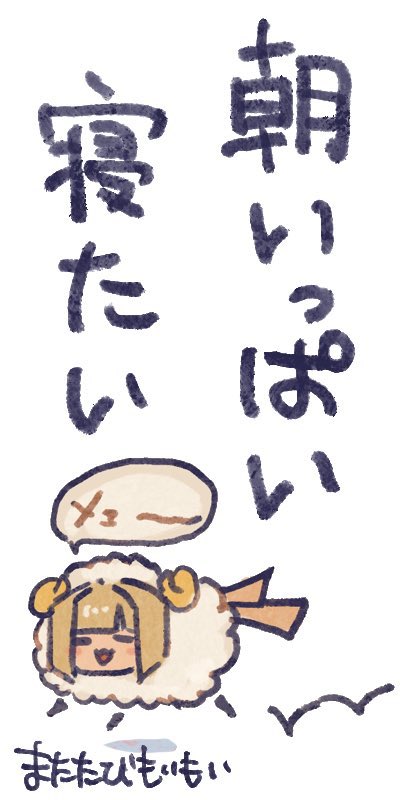 朝いっぱい
寝たい
メェー
またたびもいもい